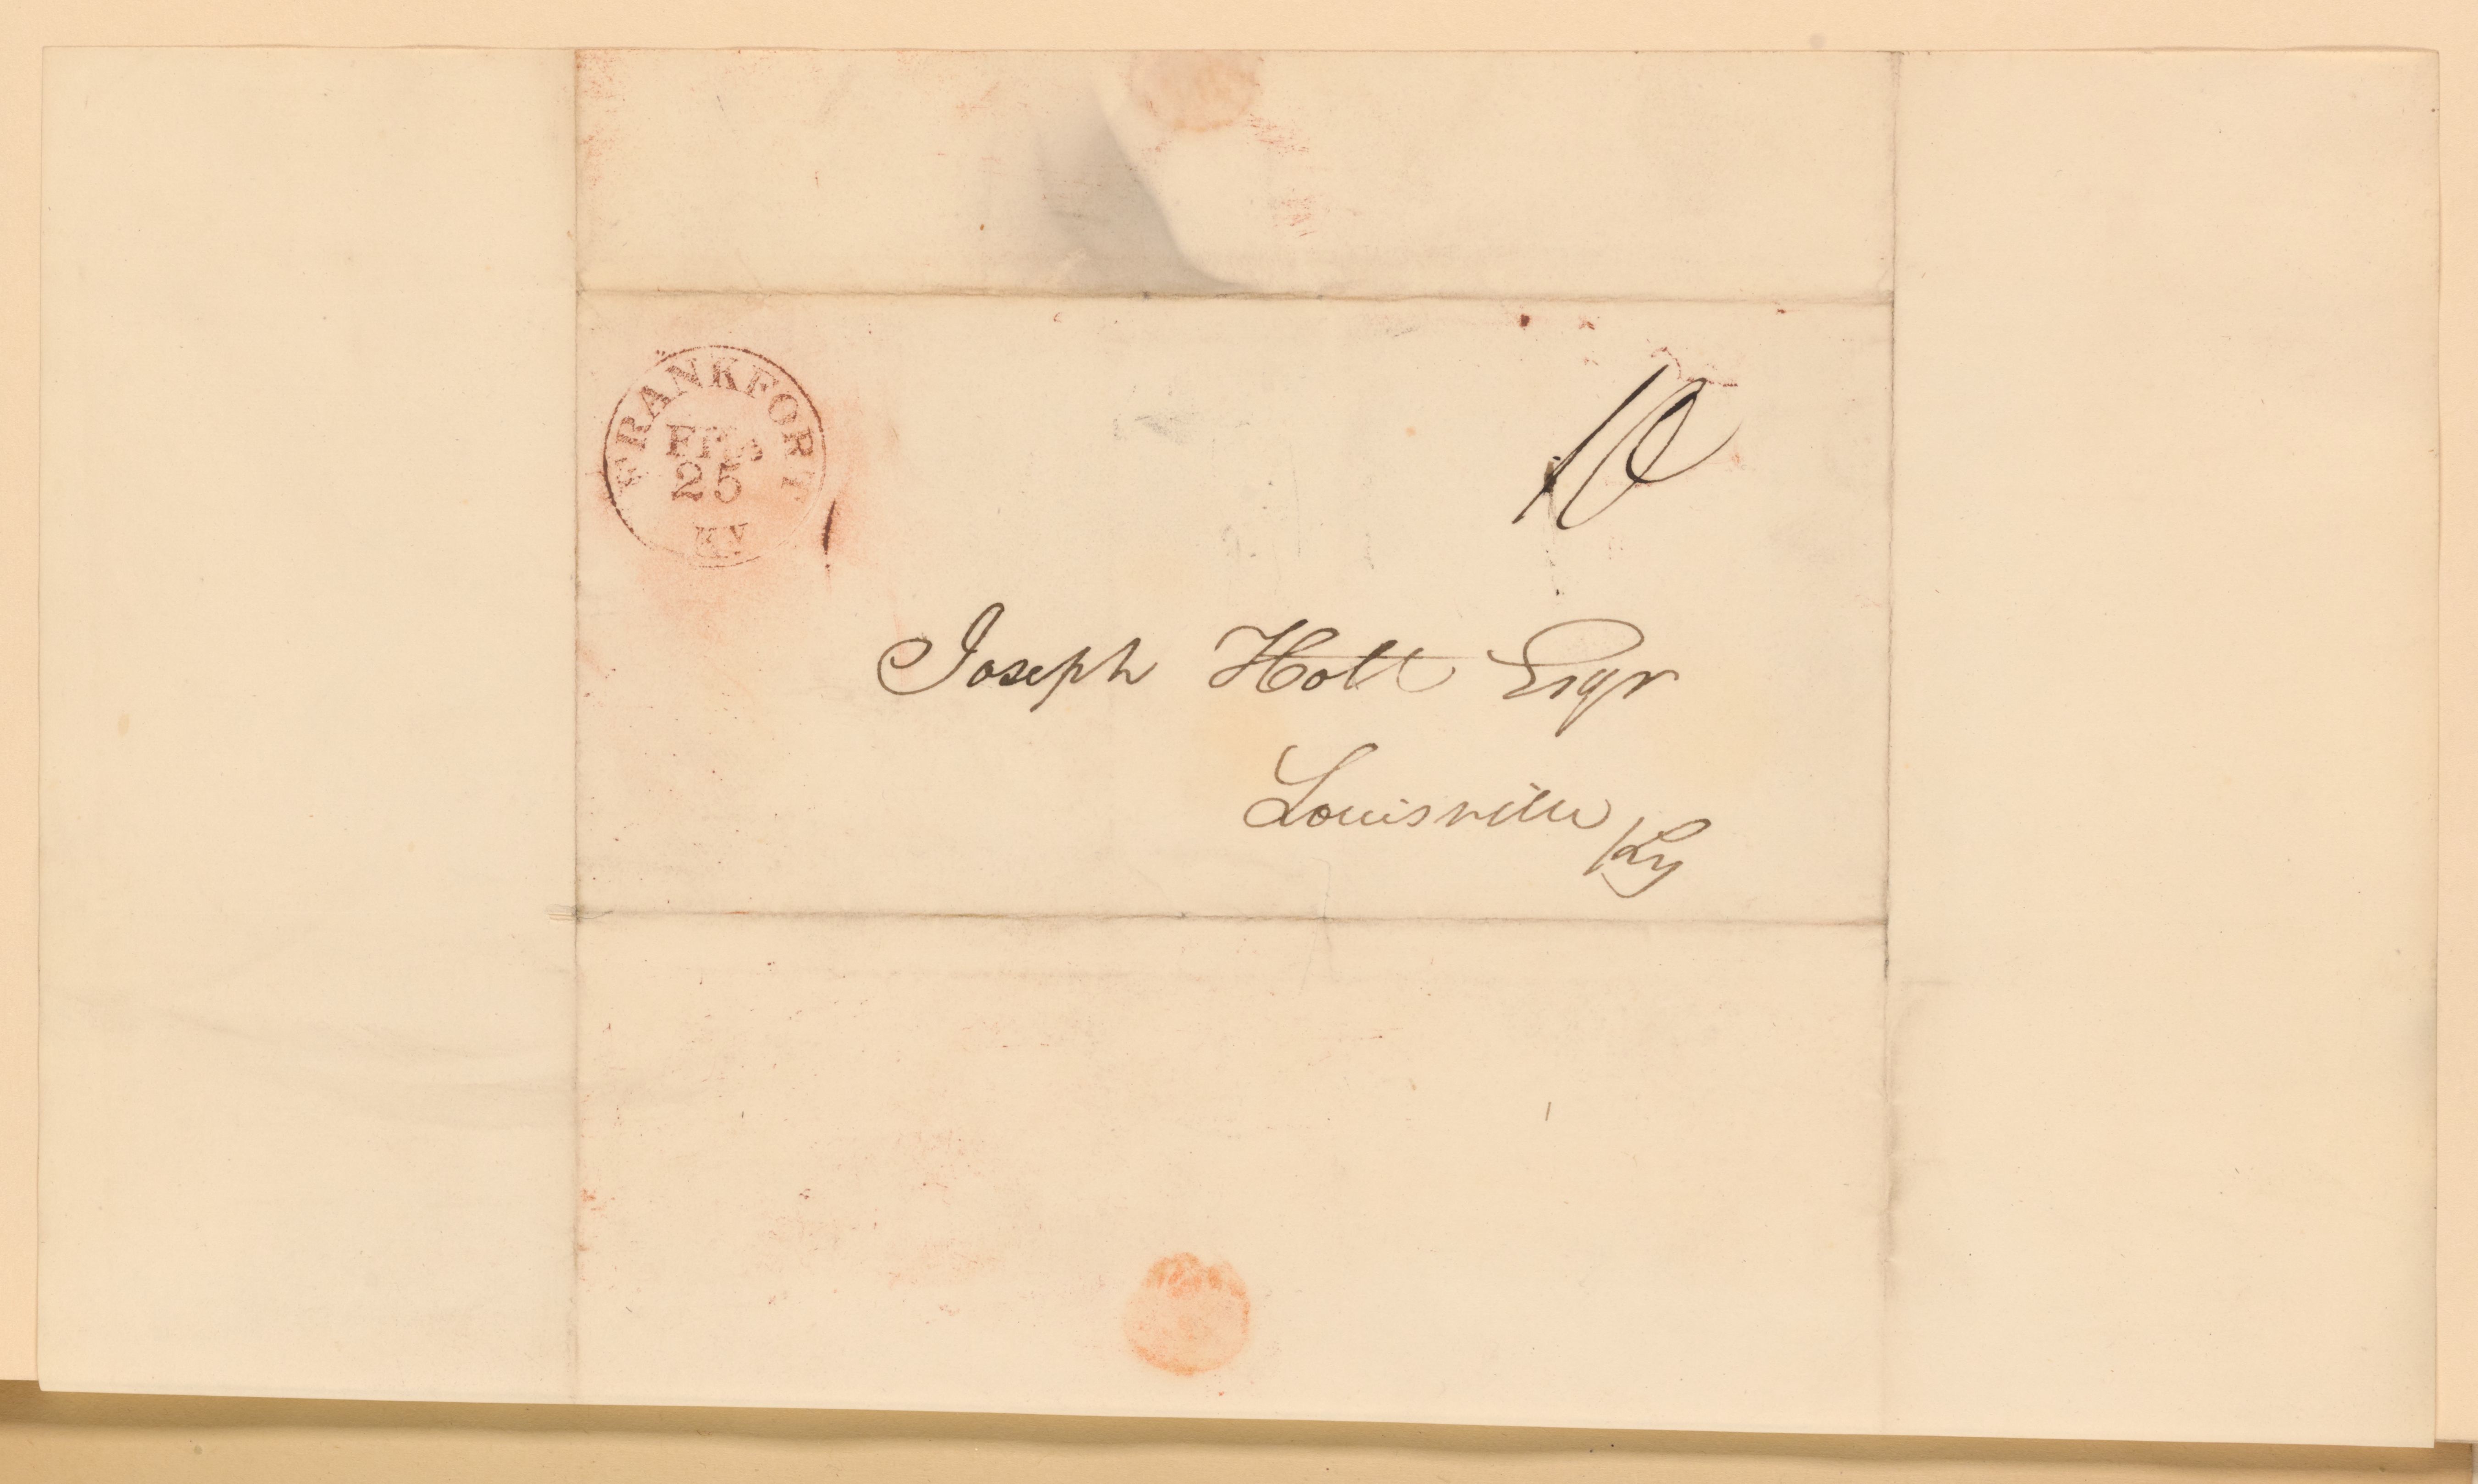 FRANKFORT
FEB
25
KY
10
Joseph Holt Esqr
Louisville
Ky